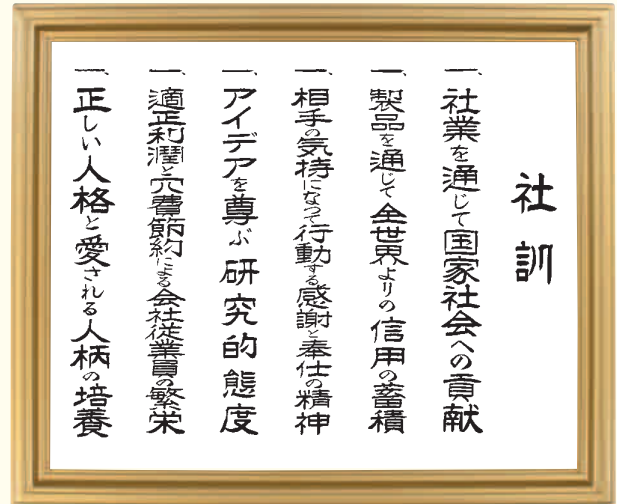 社訓
一、社業を通じて国家社会への貢献
一、製品を通じて全世界よりの信用の蓄積
一、相手の気持になつて行動する感謝と奉仕の精神
一、アイデアを尊ぶ研究的態度
一、適正利潤と冗費節約による会社従業員の繁栄
一、正しい人格と愛される人柄の培養